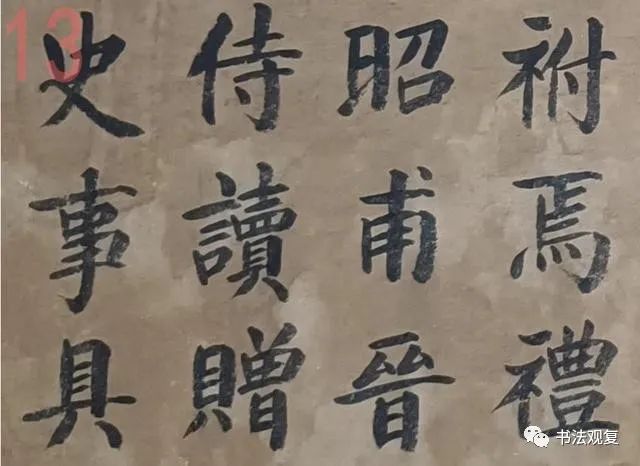 祔焉禮
昭甫晉
侍讀贈
史事具
13
书法观复